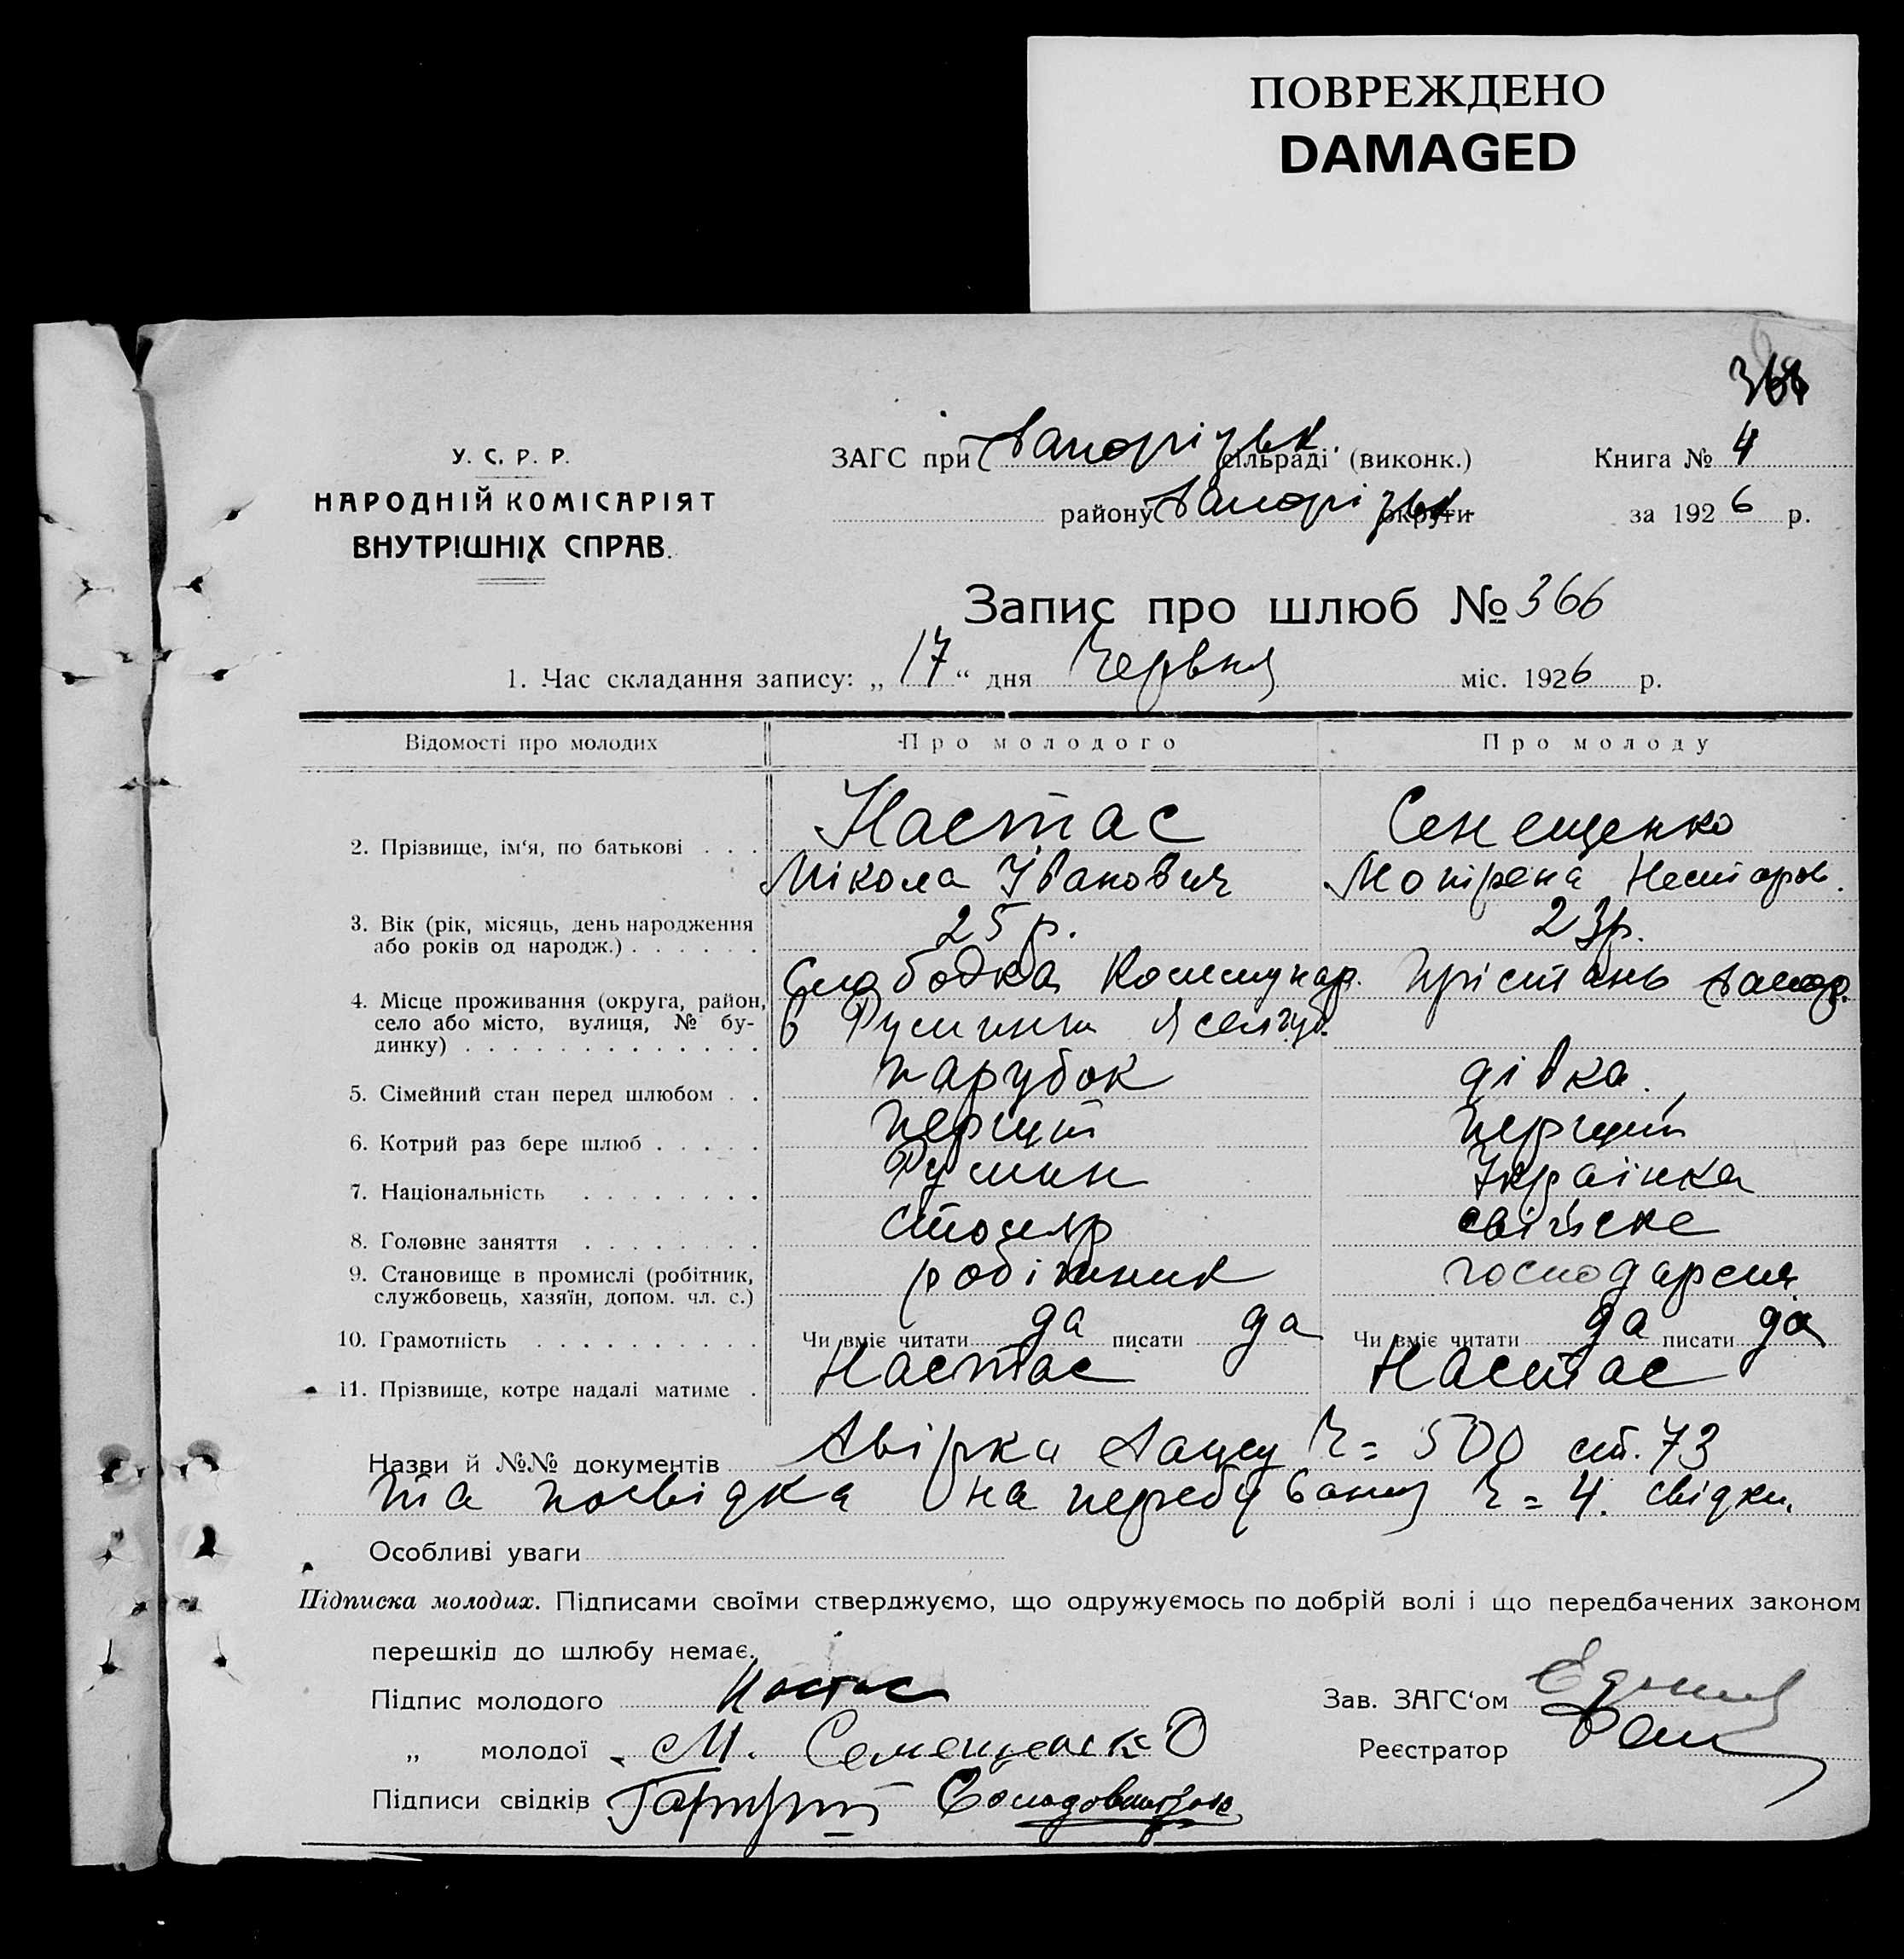 ПОВРЕЖДЕНО
DAMAGED
366
У. С. Р. Р.
НАРОДНІЙ КОМІСАРІЯТ
ВНУТРІШНІХ СПРАВ.
ЗАГС при Запорізьк. сільраді (виконк.)
району Запорізьк округи
Книга № 4
за 1926 р.
Запис про шлюб № 366
1. Час складання запису: „17“ дня Червня міс. 1926 р.
Відомості про молодих Про молодого Про молоду
2. Прізвище, ім'я, по батькові . . . Настас Сенещенко
Мікола Іванович Мотрена Нестіров.
3. Вік (рік, місяць, день народження
або років од народж.) . . . . . . 25 р. 23 р.
4. Місце проживання (округа, район,
село або місто, вулиця, № бу-
динку) . . . . . . . . . . . . .
Слободка Коммунар. Прістань Запор.
5. Сімейний стан перед шлюбом . . парубок дівка.
6. Котрий раз бере шлюб . . . . . перший перший
7. Національність . . . . . . . . Румин Українка
8. Головне заняття . . . . . . . . столяр свійське
9. Становище в промислі (робітник,
службовець, хазяїн, допом. чл. с.) робітник господарсня
10. Грамотність . . . . . . . . . . Чи вміє читати да писати да Чи вміє читати да писати да
11. Прізвище, котре надалі матиме . Настас Настас
Назви й №№ документів Звірка Загсу Ч= 500 ст. 73
та посвідка на перебування Ч= 4. свідки.
Особливі уваги
Підписка молодих. Підписами своїми стверджуємо, що одружуємось по добрій волі і що передбачених законом
перешкід до шлюбу немає.
Підпис молодого Настас
„ молодої М. Семещенско
Підписи свідків
Зав. ЗАГС'ом
Реєстратор